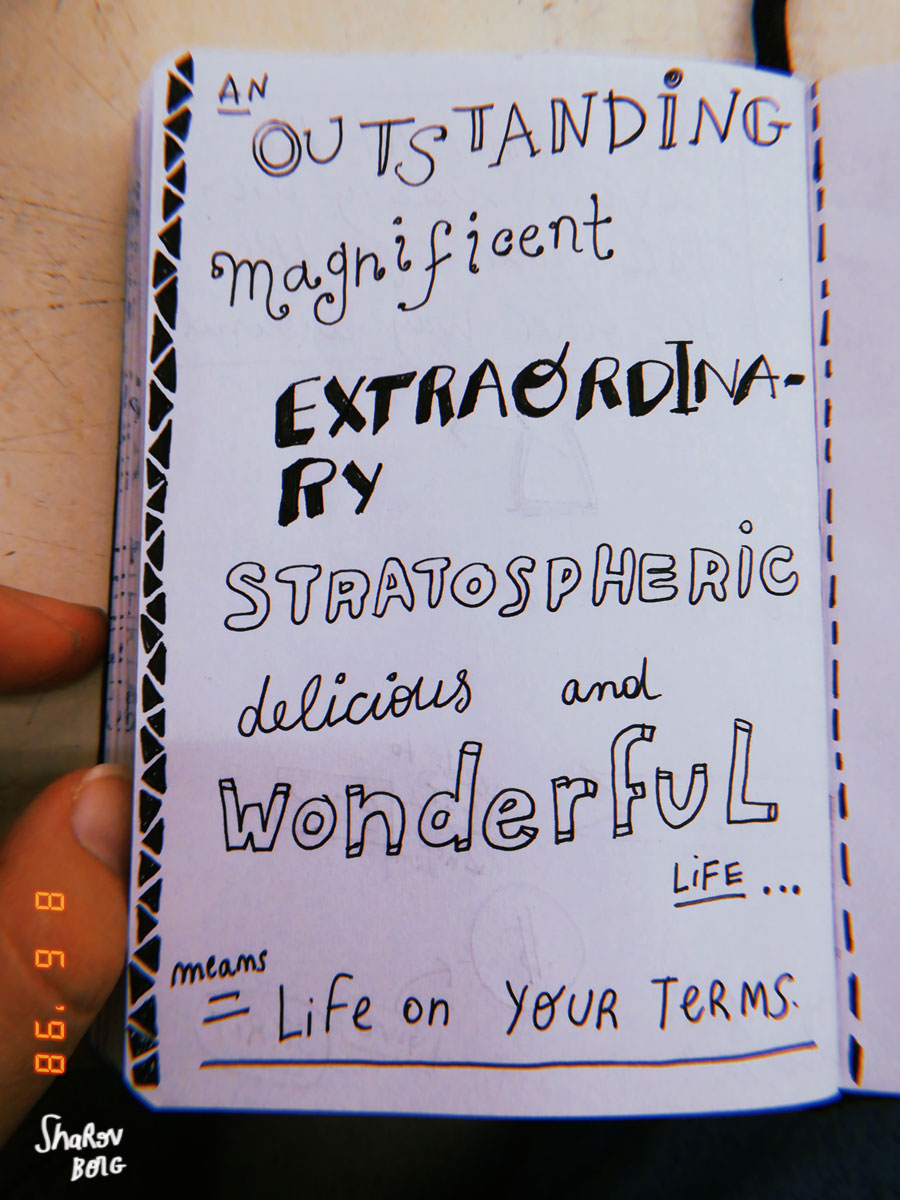 AN
OUTSTANDING
magnificent
EXTRAORDINA-
RY
STRATOSPHERIC
delicious and
wonderfuL
LiFE...
means
= Life on YOUR TeRMS.
8 6 '98